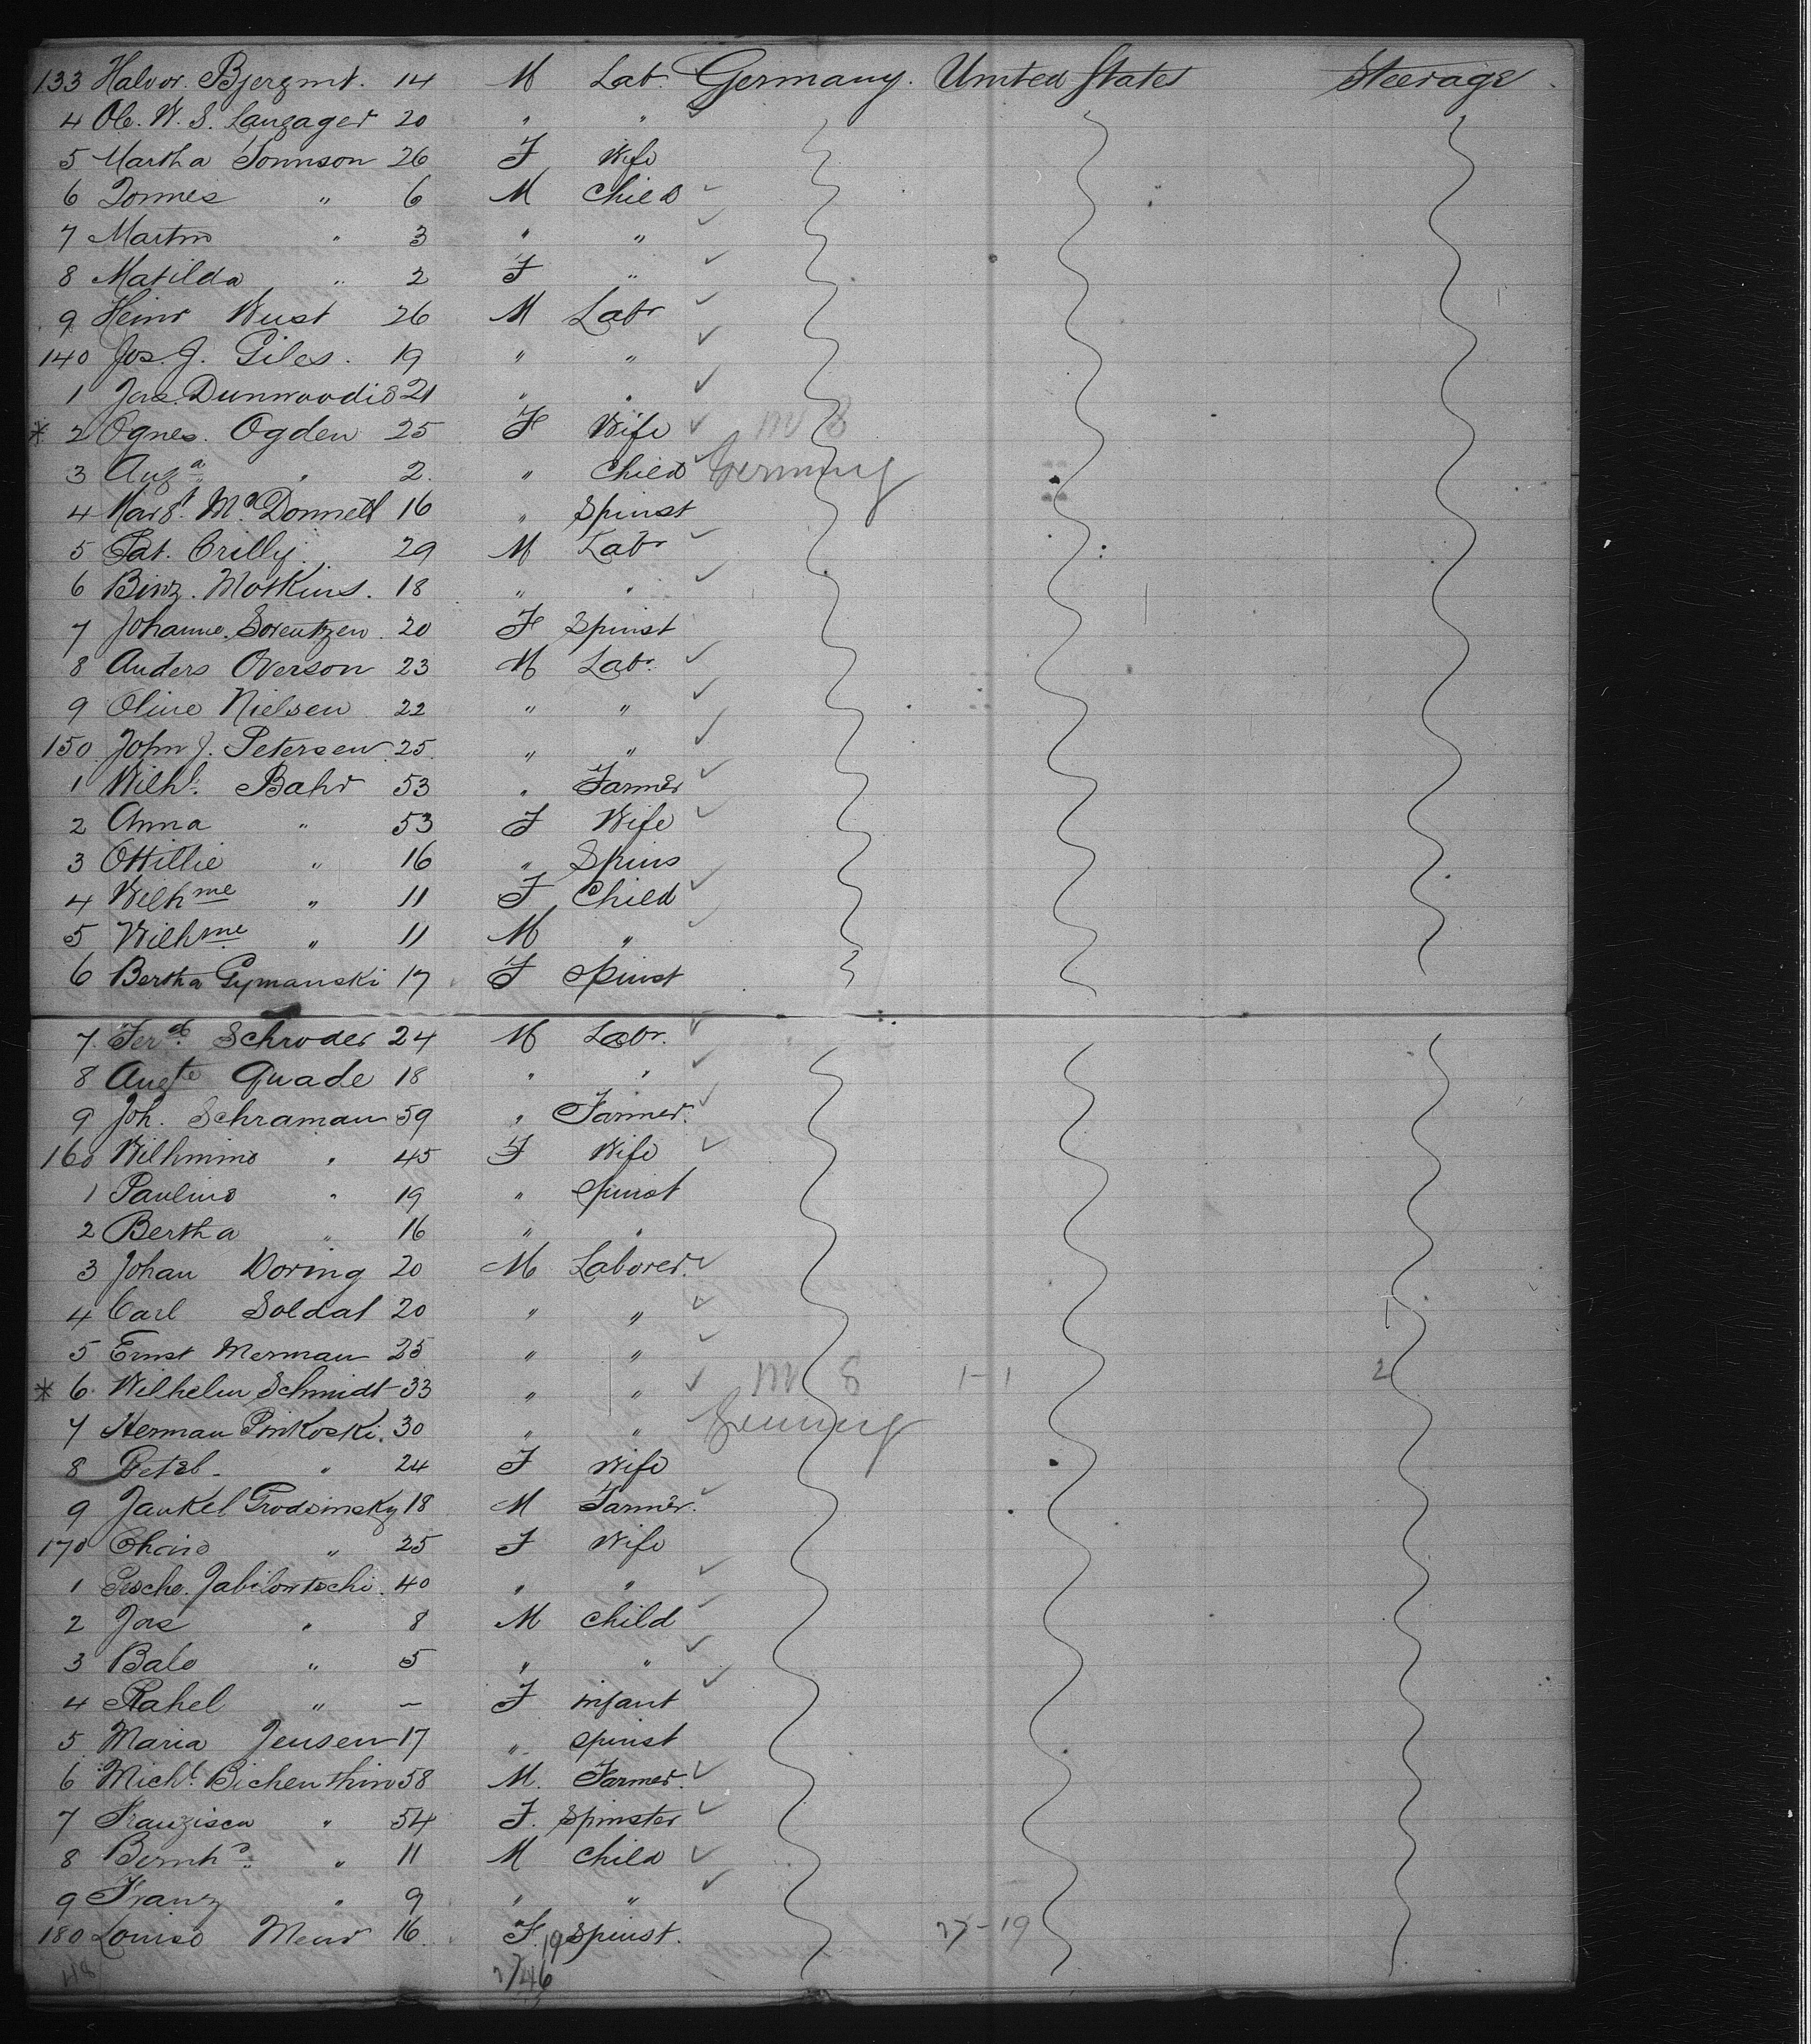 133 Halvor. Bjergmt. 14 M Lab. Germany. United States Steerage
4 Ole. W. S. Langager 20 " "
5 Martha Tonnson 26 F Wife
6 Tonnes " 6 M Child
7 Martin " 3 " "
8 Matilda " 2 F "
9 Heinr Wust 26 M Labr
140 Jos. J. Giles. 19 " "
1 Jas. Dunwoodie 21 " "
* 2 Agnes. Ogden 25 F Wife M 8
3 Auga " 2 " Child Germany
4 Margt. McDonnell 16 " Spinst
5 Pat. Crilly 29 M Labr
6 Binz. Motkins. 18 " "
7 Johanne. Sorentzen. 20 F Spinst
8 Anders Overson 23 M Labr.
9 Oline Nielsen 22 " "
150 John J. Petersen 25 " "
1 Wilh. Bahr 53 " Farmer
2 Anna " 53 F Wife
3 Ottillie " 16 " Spins
4 Wilhme " 11 F Child
5 Wilhme " 11 M "
6 Bertha Gymanski 17 F Spinst
7 Ferd. Schroder 24 M Labr.
8 Augte Quade 18 " "
9 Joh. Schraman 59 " Farmer.
160 Wilhmine " 45 F Wife
1 Pauline " 19 " Spinst
2 Bertha " 16 " "
3 Johan Doring 20 M Laborer.
4 Carl Soldat 20 " "
5 Ernst Merman 25 " "
* 6 Wilhelm Schmidt 33 " " M 8 1-1 2
7 Herman Pinkoski. 30 " " Germany
8 " 24 F Wife
9 Jankel Grodsinsky 18 M Farmer.
170 " 25 F Wife
1 Pesche. Jabilowtschi. 40 " "
2 Jos " 8 M Child
3 Bale " 5 " "
4 Rahel " — F infant
5 Maria Jensen 17 " Spinst
6 Michl. Bichenthin 58 M. Farmer.
7 Franzisca " 54 F. Spinster
8 Bernhd. " 11 M Child
9 Franz " 9 " "
180 Louise Meur 16 F. Spinst. 27-19
19
2746
48